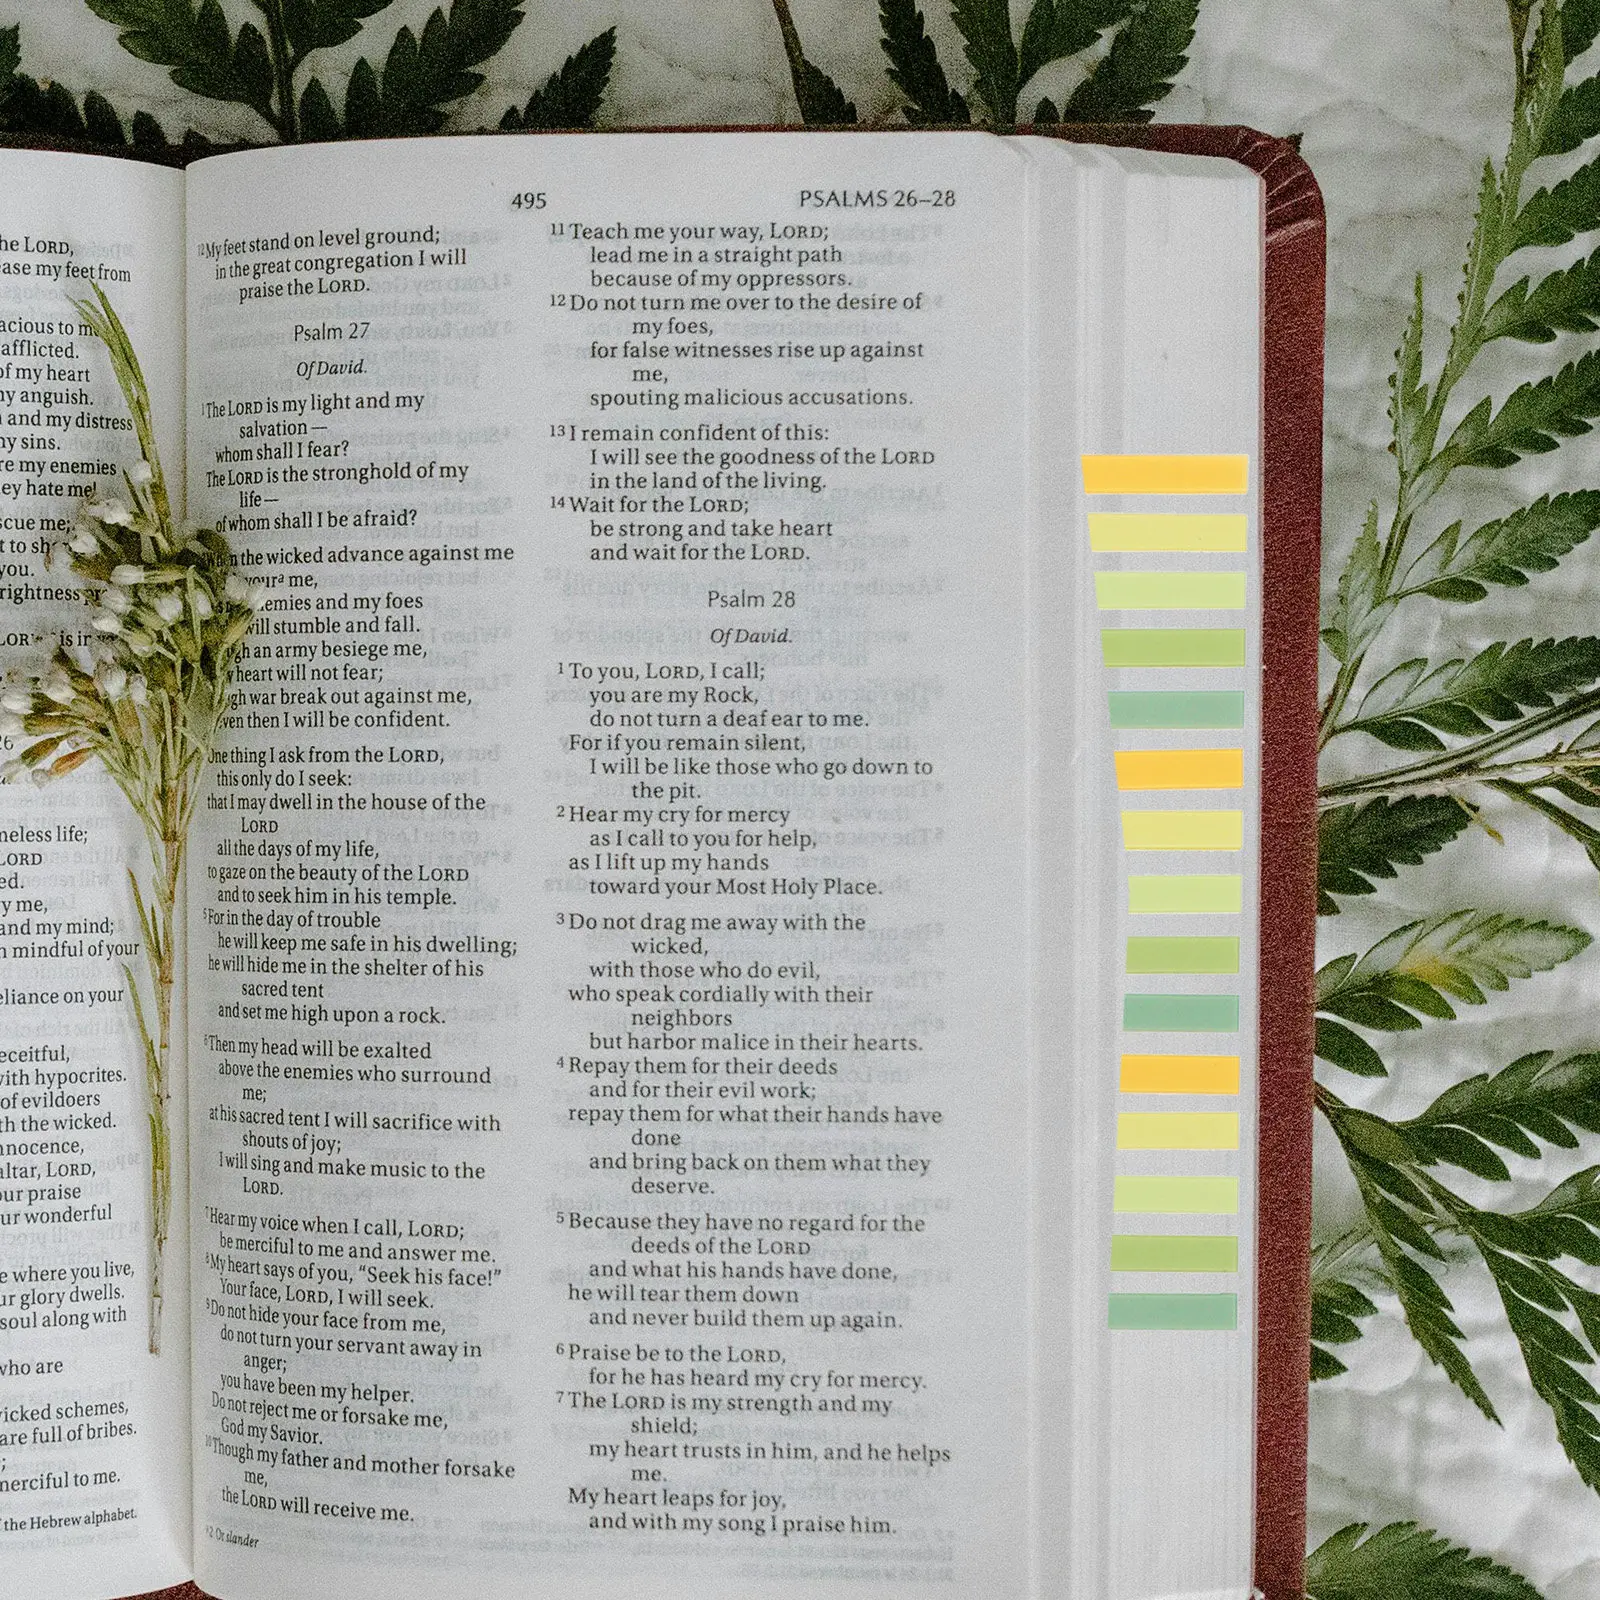 he LORD,
ase my feet from
acious to me
afflicted.
of my heart
ny anguish.
n and my distress
ny sins.
re my enemies
ey hate me!
scue me;
t to
you.
rightness
LOR is in
26
neless life;
LORD
ed.
ry me,
and my mind;
n mindful of your
eliance on your
eceitful,
vith hypocrites.
of evildoers
th the wicked.
nnocence,
altar, LORD,
our praise
ur wonderful
e where you live,
ur glory dwells.
soul along with
who are
wicked schemes,
are full of bribes.
;
merciful to me.
the Hebrew alphabet.
495
PSALMS 26–28
12 My feet stand on level ground;
in the great congregation I will
praise the LORD.
Psalm 27
Of David.
1 The LORD is my light and my
salvation—
whom shall I fear?
The LORD is the stronghold of my
life—
of whom shall I be afraid?
When the wicked advance against me
your a me,
emies and my foes
will stumble and fall.
gh an army besiege me,
y heart will not fear;
gh war break out against me,
even then I will be confident.
One thing I ask from the LORD,
this only do I seek:
that I may dwell in the house of the
LORD
all the days of my life,
to gaze on the beauty of the LORD
and to seek him in his temple.
5 For in the day of trouble
he will keep me safe in his dwelling;
he will hide me in the shelter of his
sacred tent
and set me high upon a rock.
6 Then my head will be exalted
above the enemies who surround
me;
at his sacred tent I will sacrifice with
shouts of joy;
I will sing and make music to the
LORD.
7 Hear my voice when I call, LORD;
be merciful to me and answer me.
8 My heart says of you, “Seek his face!”
Your face, LORD, I will seek.
9 Do not hide your face from me,
do not turn your servant away in
anger;
you have been my helper.
Do not reject me or forsake me,
God my Savior.
10 Though my father and mother forsake
me,
the LORD will receive me.
a 2 Or slander
11 Teach me your way, LORD;
lead me in a straight path
because of my oppressors.
12 Do not turn me over to the desire of
my foes,
for false witnesses rise up against
me,
spouting malicious accusations.
13 I remain confident of this:
I will see the goodness of the LORD
in the land of the living.
14 Wait for the LORD;
be strong and take heart
and wait for the LORD.
Psalm 28
Of David.
1 To you, LORD, I call;
you are my Rock,
do not turn a deaf ear to me.
For if you remain silent,
I will be like those who go down to
the pit.
2 Hear my cry for mercy
as I call to you for help,
as I lift up my hands
toward your Most Holy Place.
3 Do not drag me away with the
wicked,
with those who do evil,
who speak cordially with their
neighbors
but harbor malice in their hearts.
4 Repay them for their deeds
and for their evil work;
repay them for what their hands have
done
and bring back on them what they
deserve.
5 Because they have no regard for the
deeds of the LORD
and what his hands have done,
he will tear them down
and never build them up again.
6 Praise be to the LORD,
for he has heard my cry for mercy.
7 The LORD is my strength and my
shield;
my heart trusts in him, and he helps
me.
My heart leaps for joy,
and with my song I praise him.